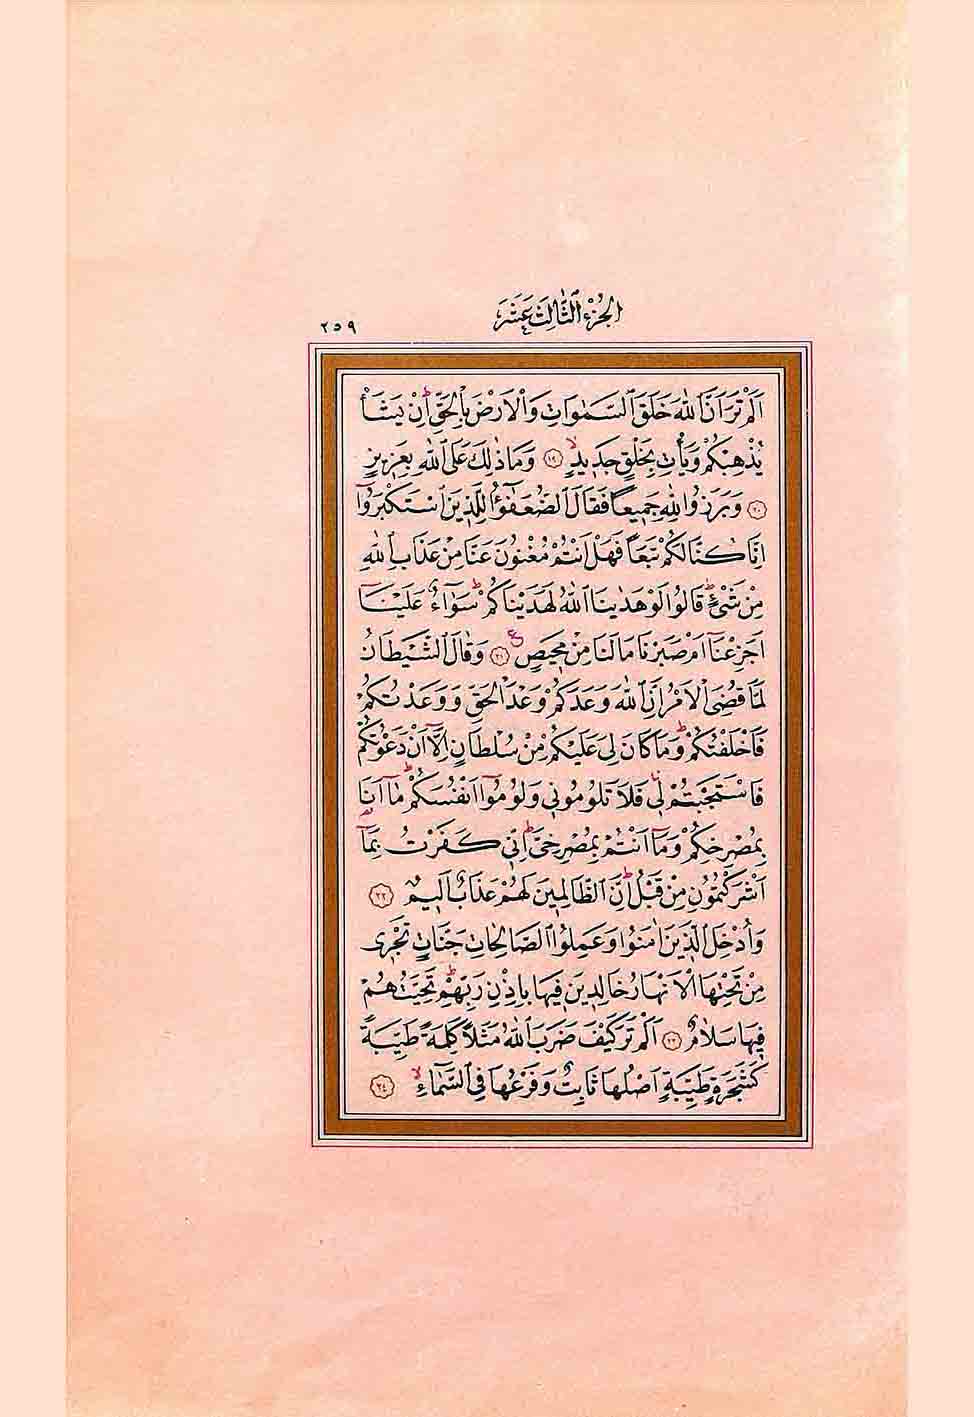 الجزء الثالث عشر
٢٥٩
اَلَمْ تَرَ اَنَّ اللّٰهَ خَلَقَ السَّمٰوَاتِ وَالْاَرْضَ بِالْحَقِّۜ اِنْ يَشَأْ
يُذْهِبْكُمْ وَيَأْتِ بِخَلْقٍ جَدٖيدٍۙ ﴿١٩﴾ وَمَا ذٰلِكَ عَلَى اللّٰهِ بِعَزٖيزٍ
﴿٢٠﴾ وَبَرَزُوا لِلّٰهِ جَمٖيعاً فَقَالَ الضُّعَفٰٓؤُ۬ا لِلَّذٖينَ اسْتَكْبَرُٓوا
اِنَّا كُنَّا لَكُمْ تَبَعاً فَهَلْ اَنْتُمْ مُغْنُونَ عَنَّا مِنْ عَذَابِ اللّٰهِ
مِنْ شَيْءٍۜ قَالُوا لَوْ هَدٰينَا اللّٰهُ لَهَدَيْنَاكُمْۜ سَوَٓاءٌ عَلَيْنَٓا
اَجَزِعْنَٓا اَمْ صَبَرْنَا مَا لَنَا مِنْ مَحٖيصٍ۟ ﴿٢١﴾ وَقَالَ الشَّيْطَانُ
لَمَّا قُضِيَ الْاَمْرُ اِنَّ اللّٰهَ وَعَدَكُمْ وَعْدَ الْحَقِّ وَوَعَدْتُكُمْ
فَاَخْلَفْتُكُمْۜ وَمَا كَانَ لِيَ عَلَيْكُمْ مِنْ سُلْطَانٍ اِلَّٓا اَنْ دَعَوْتُكُمْ
فَاسْتَجَبْتُمْ لٖيۚ فَلَا تَلُومُونٖي وَلُومُٓوا اَنْفُسَكُمْۜ مَٓا اَنَا۬
بِمُصْرِخِكُمْ وَمَٓا اَنْتُمْ بِمُصْرِخِيَّۜ اِنّٖي كَفَرْتُ بِمَٓا
اَشْرَكْتُمُونِ مِنْ قَبْلُۜ اِنَّ الظَّالِمٖينَ لَهُمْ عَذَابٌ اَلٖيمٌ ﴿٢٢﴾
وَاُدْخِلَ الَّذٖينَ اٰمَنُوا وَعَمِلُوا الصَّالِحَاتِ جَنَّاتٍ تَجْرٖي
مِنْ تَحْتِهَا الْاَنْهَارُ خَالِدٖينَ فٖيهَا بِاِذْنِ رَبِّهِمْۜ تَحِيَّتُهُمْ
فٖيهَا سَلَامٌ ﴿٢٣﴾ اَلَمْ تَرَ كَيْفَ ضَرَبَ اللّٰهُ مَثَلاً كَلِمَةً طَيِّبَةً
كَشَجَرَةٍ طَيِّبَةٍ اَصْلُهَا ثَابِتٌ وَفَرْعُهَا فِي السَّمَٓاءِۙ ﴿٢٤﴾